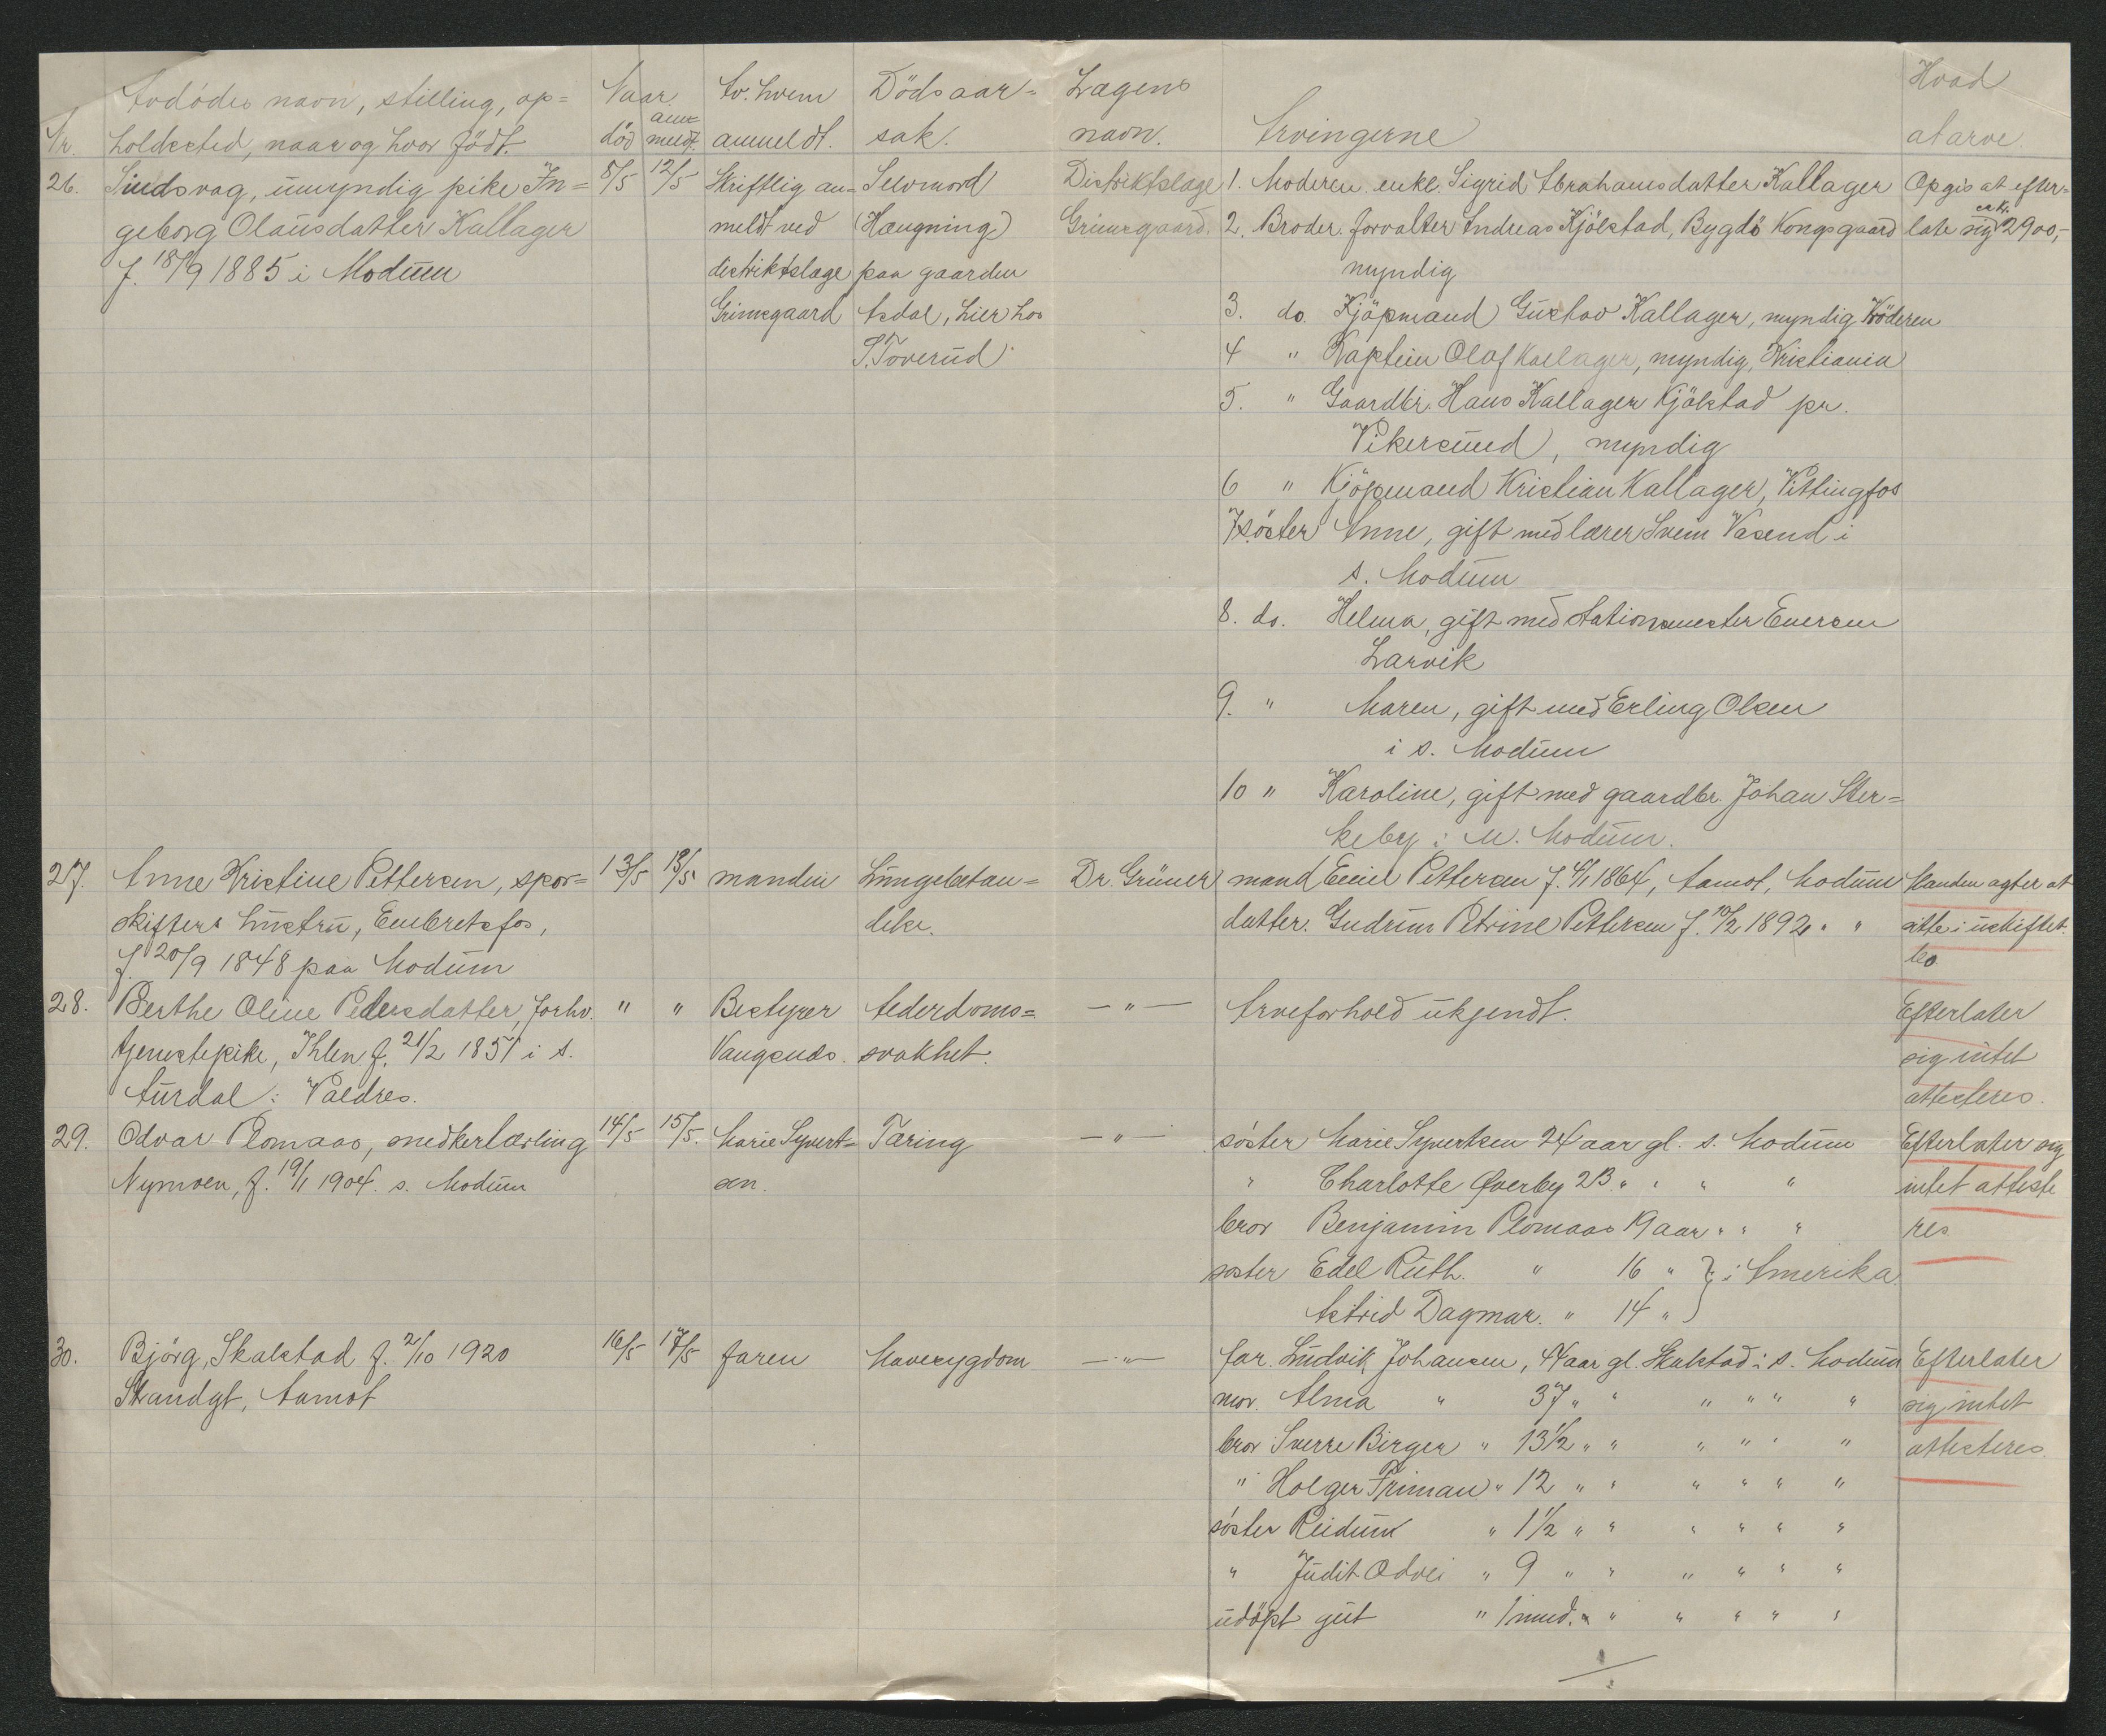 Avdödes navn, stilling, op=
Nr. holdssted, naar og hvor född.
Naar
död anmeldt.
Av hvem
anmeldt.
Dödsaar=
sak.
Lægens
navn.
Arvingerne
Hvad
at arve.
26. Sindsvag, umyndig pike In=
geborg Olausdatter Kallager
f. 18/9 1885 i Modum
8/5 12/5
Skriftlig an=
meldt ved
distriktslæge
Grimsgaard
Selvmord
(Hængning)
paa gaarden
Asdøl, Lier hos
T. Toverud
Distriktslæge
Grimsgaard.
1. Moderen enke Sigrid Abrahamsdatter Kallager
2. Broder forvalter Andreas Kjölstad, Bygdö Kongsgaard
myndig
3. do. Kjöpmand Gustav Kallager, myndig Kröderen
4 " Kaptein Olaf Kallager, myndig, Kristiania
5. " Gaardbr. Hans Kallager Kjölstad pr.
Vikersund, myndig
6 " Kjöpmand Kristian Kallager, Vittingfos
7 söster Anne, gift med lærer Svein Vasend i
s. Modum
8. do. Helma, gift med Stationsmester Evensen
Larvik
9. " Maren, gift med Erling Olsen
i s. Modum
10 " Karoline, gift med gaardbr. Johan Ster=
keby i N. Modum.
Opgis at efter=
late sig ca. kr. 2900,-
27. Anne Kristine Pettersen, spor=
skifters hustru, Embretsfos,
f. 20/9 1848 paa Modum
13/5 13/5 manden
Lungebetæn=
delse.
Dr. Grüner
mand Emil Pettersen f. 4/1 1864, Aamot, Modum
datter. Gudrun Petrine Pettersen f. 10/2 1892 " "
Manden agter at
sitte i uskiftet
bo
28. Berthe Oline Pedersdatter, forhv.
tjenestepike, Ihlen f. 21/2 1851 i s.
Aurdal i Valdres.
" " Bestyrer
Vaugsnes.
Alderdoms=
svakhet.
— " —
Arveforhold ukjendt.
Efterlater
sig intet
attesteres.
29. Odvar Plomaas, snedkerlærling
Nymoen, f. 19/1 1904. s. Modum
14/5 15/5. Marie Syvert=
sen.
Tæring
— " —
söster Marie Syvertsen 24 aar gl. s. Modum
" Charlotte Øverby 23 " " " "
bror Benjamin Plomaas 19 aar " " "
söster Edel Ruth. " 16 " } i Amerika.
Astrid Dagmar. " 14 "
Efterlater sig
intet atteste
res
30. Björg Skalstad f. 2/10 1920
Strandgt, Aamot
16/5 17/5 faren
Mavesygdom
— " —
far. Ludvik Johansen, 41 aar gl. Skalstad i s. Modum
mor. Alma " 37 " " " " " "
bror Sverre Birger " 13 1/2 " " " " " "
" Holger Friman " 12 " " " " " "
söster Reidun " 1 1/2 " " " " " "
" Judit Odvei " 9 " " " " " "
udöpt gut " 1 mnd. " " " " " "
Efterlater
sig intet
attesteres.